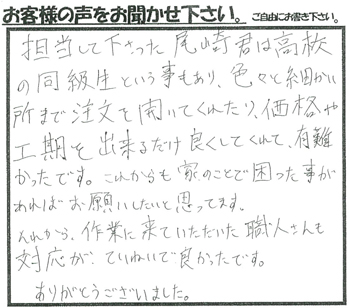 お客様の声をお聞かせ下さい。 ご自由にお書き下さい。
担当して下さった尾崎君は高校
の同級生という事もあり、色々と細かい
所まで注文を聞いてくれたり、価格や
工期を出来るだけ良くしてくれて、有難
かったです。これからも家のことで困った事が
あればお願いしたいと思ってます。
それから、作業に来ていただいた職人さんも
対応が、ていねいで良かったです。
ありがとうございました。